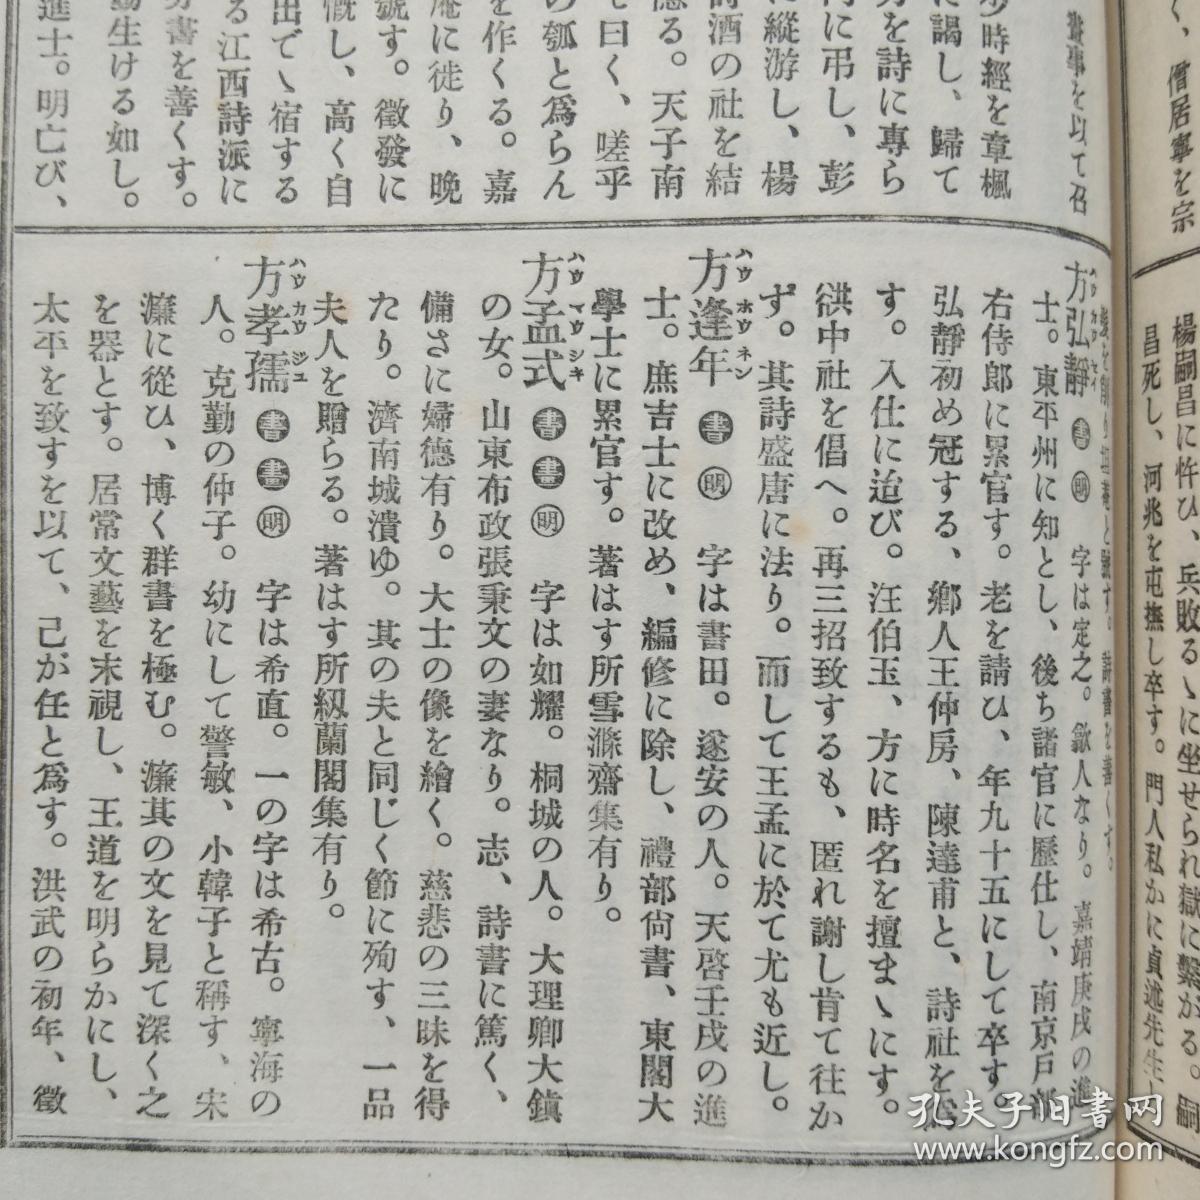 く、僧居寧を宗
楊嗣昌に忤ひ、兵敗るゝに坐せられ獄に繫がる。嗣
昌死し、河兆を屯撫し卒す。門人私かに貞述先生
事を以て召
少時經を章楓
に謁し、歸て
力を詩に專ら
に弔し、彭
に縱游し、楊
詩酒の社を結
隱る。天子南
曰く、嗟乎
の瓠と爲らん
を作くる。嘉
庵に徙り、晩
號す。徵發に
慨し、高く自
出でゝ宿する
る江西詩派に
書を善くす。
生ける如し。
進士。明亡び、
と號す。詩書を善くす。
方弘靜 書 明 字は定之。歙人なり。嘉靖庚戌の進
士。東平州に知とし、後ち諸官に歷仕し、南京戶部
右侍郎に累官す。老を請ひ、年九十五にして卒す。
弘靜初め冠する、鄕人王仲房、陳達甫と、詩社を爲
す。入仕に迨び。汪伯玉、方に時名を擅まゝにす。
中社を倡へ。再三招致するも、匿れ謝し肯て往か
ず。其詩盛唐に法り。而して王孟に於て尤も近し。
方逢年 ハウ ホウ ネン 書 明 字は書田。遂安の人。天啓壬戌の進
士。庶吉士に改め、編修に除し、禮部尙書、東閣大
學士に累官す。著はす所雪滌齋集有り。
方孟式 ハウ マウ シキ 書 畫 明 字は如耀。桐城の人。大理卿大鎭
の女。山東布政張秉文の妻なり。志、詩書に篤く、
備さに婦德有り。大士の像を繪く。慈悲の三昧を得
たり。濟南城潰ゆ。其の夫と同じく節に殉す、一品
夫人を贈らる。著はす所紉蘭閣集有り。
方孝孺 ハウ カウ ジユ 書 畫 明 字は希直。一の字は希古。寧海の
人。克勤の仲子。幼にして警敏、小韓子と稱す、宋
濂に從ひ、博く群書を極む。濂其の文を見て深く之
を器とす。居常文藝を末視し、王道を明らかにし、
太平を致すを以て、己が任と爲す。洪武の初年、徵
孔夫子旧书网
www.kongfz.com